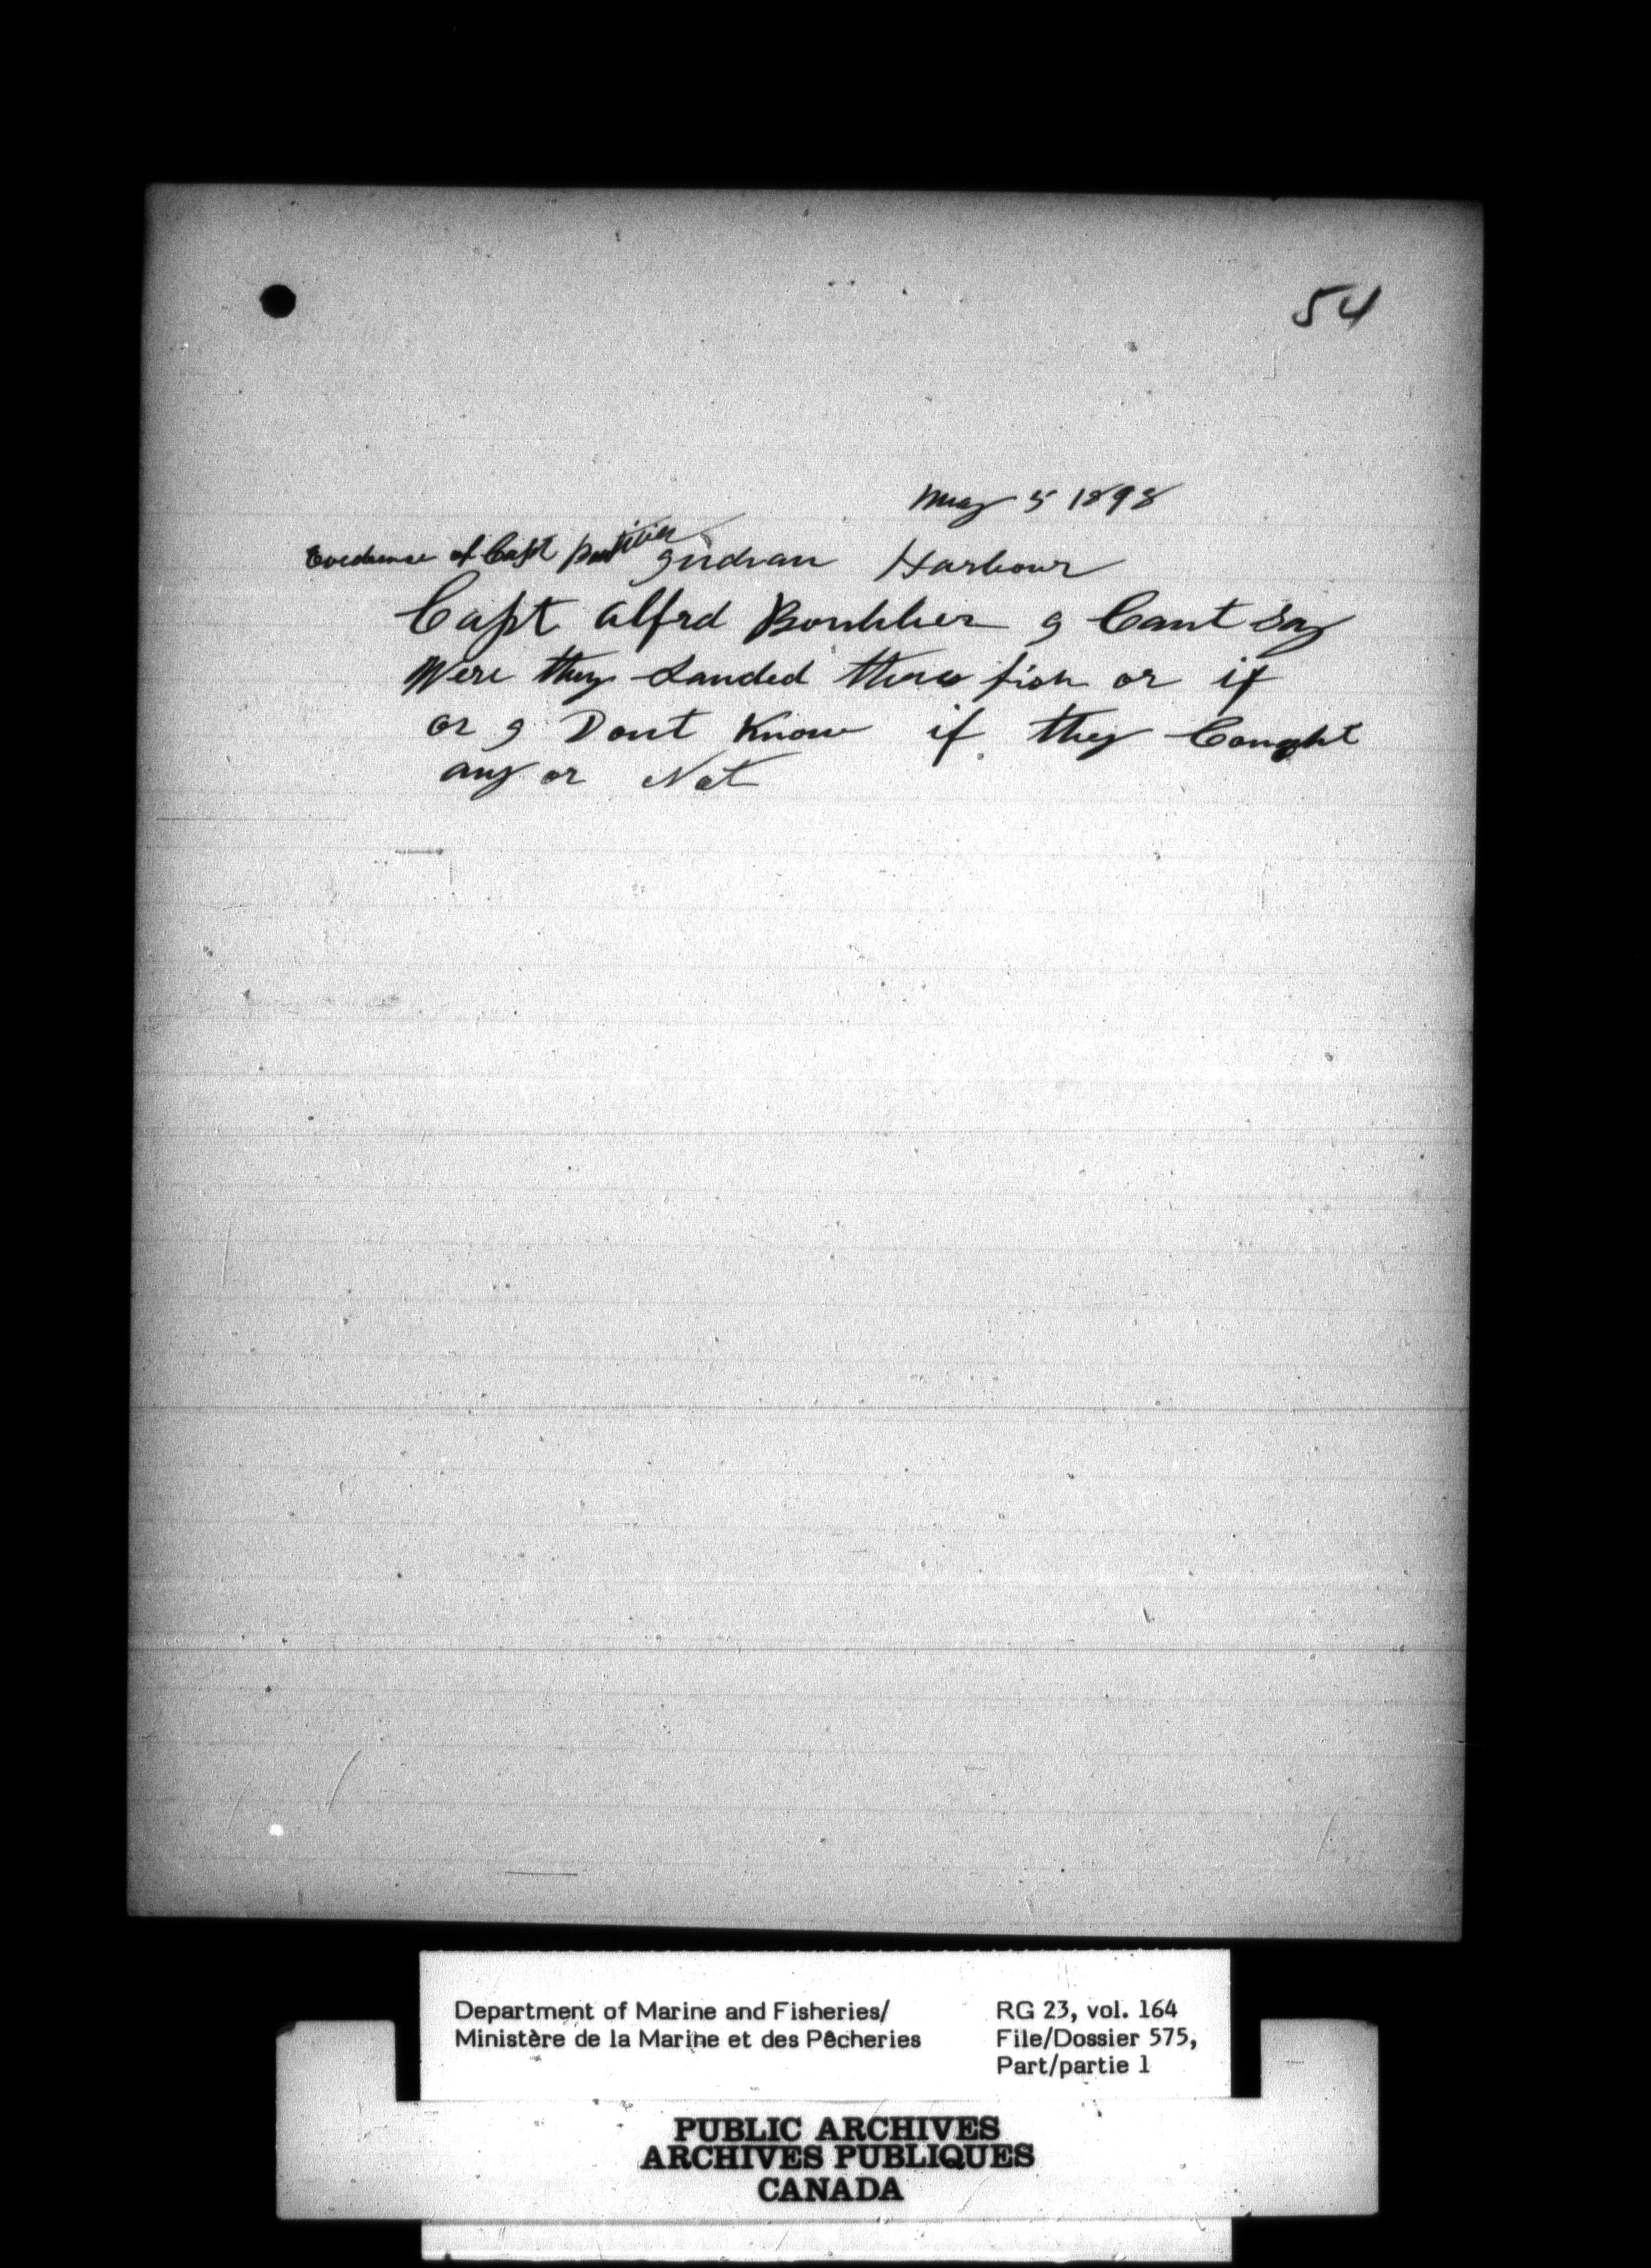 54
May 5 1898
Evedence of Capt Indian Harbour
Capt Alfrd Boutilier I Cant Say
Were they Landed there fish or if
or I Dont Know if they Caught
any or Not
Department of Marine and Fisheries/
Ministère de la Marine et des Pêcheries
RG 23, vol. 164
File/Dossier 575,
Part/partie 1
PUBLIC ARCHIVES
ARCHIVES PUBLIQUES
CANADA